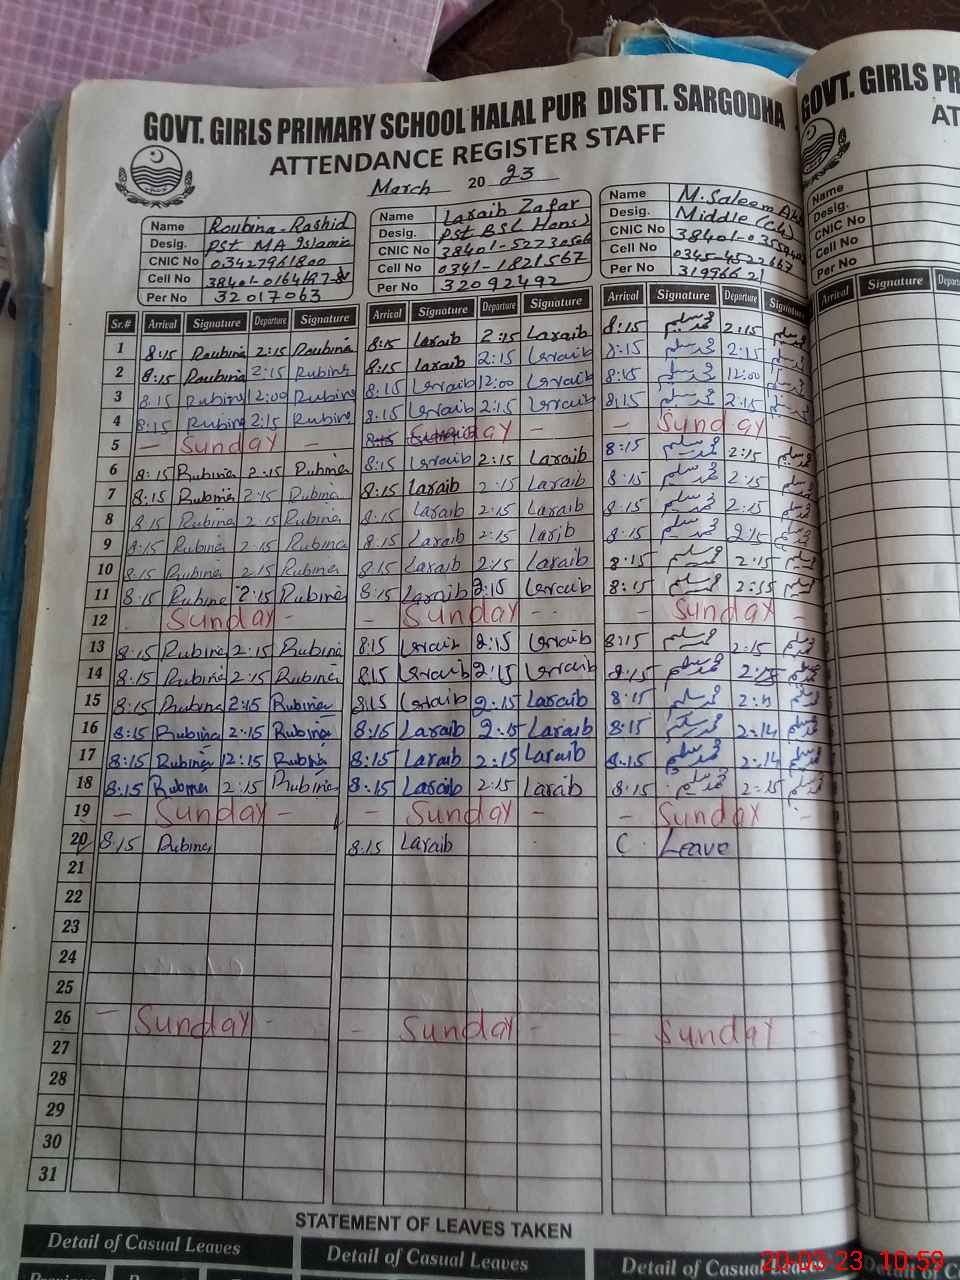 GOVT. GIRLS PRIMARY SCHOOL HALAL PUR DISTT. SARGODHA
ATTENDANCE REGISTER STAFF
March 2023
Name Roubina Rashid Name Laraib Zafar Name M. Saleem
Desig. PST MA Islamic Desig. PST BSC (Hons) Desig. Middle
CNIC No 03427961800 CNIC No 38401-5273056 CNIC No
Cell No Cell No 0341-1821567 Cell No 0345-4522667
Per No 32017063 Per No 32092492 Per No 31996621
Sr.# Arrival Signature Departure Signature Arrival Signature Departure Signature Arrival Signature Departure Signature
1 8:15 Roubina 2:15 Roubina 8:15 Laraib 2:15 Laraib 8:15 محمد سلیم 2:15
2 8:15 Roubina 2:15 Rubina 8:15 Laraib 2:15 Laraib 8:15 محمد سلیم 2:15
3 8:15 Rubina 12:00 Rubina 8:15 Laraib 12:00 Laraib 8:15 محمد سلیم 12:00
4 8:15 Rubina 2:15 Rubina 8:15 Laraib 2:15 Laraib 8:15 محمد سلیم 2:15
5 - Sunday - Sunday - - Sunday -
6 8:15 Rubina 2:15 Rubina 8:15 Laraib 2:15 Laraib 8:15 محمد سلیم 2:15
7 8:15 Rubina 2:15 Rubina 8:15 Laraib 2:15 Laraib 8:15 محمد سلیم 2:15
8 8:15 Rubina 2:15 Rubina 8:15 Laraib 2:15 Laraib 8:15 محمد سلیم 2:15
9 8:15 Rubina 2:15 Rubina 8:15 Laraib 2:15 Larib 8:15 محمد سلیم 2:15
10 8:15 Rubina 2:15 Rubina 8:15 Laraib 2:15 Laraib 8:15 محمد سلیم 2:15
11 8:15 Rubina 2:15 Rubina 8:15 Laraib 2:15 Laraib 8:15 محمد سلیم
12 Sunday - - Sunday - - Sunday
13 8:15 Rubina 2:15 Rubina 8:15 Laraib 2:15 Laraib 8:15 محمد سلیم 2:15
14 8:15 Rubina 2:15 Rubina 8:15 Laraib 2:15 Laraib 8:15 محمد سلیم
15 8:15 Rubina 2:15 Rubina 8:15 Laraib 2:15 Laraib 8:15 محمد سلیم
16 8:15 Rubina 2:15 Rubina 8:15 Laraib 2:15 Laraib 8:15 محمد سلیم 2:14
17 8:15 Rubina 12:15 Rubina 8:15 Laraib 2:15 Laraib 8:15 محمد سلیم 2:14
18 8:15 Rubina 2:15 Rubina 8:15 Laraib 2:15 Larab 8:15 محمد سلیم 2:15
19 - Sunday - - Sunday - - Sunday -
20 8:15 Rubina 8:15 Laraib C Leave
21
22
23
24
25
26 - Sunday - - Sunday - - Sunday -
27
28
29
30
31
STATEMENT OF LEAVES TAKEN
Detail of Casual Leaves Detail of Casual Leaves Detail of Casual Leaves
GOVT. GIRLS
Name
Desig.
CNIC No
Cell No
Per No
Arrival Signature
20-03-23 10:59